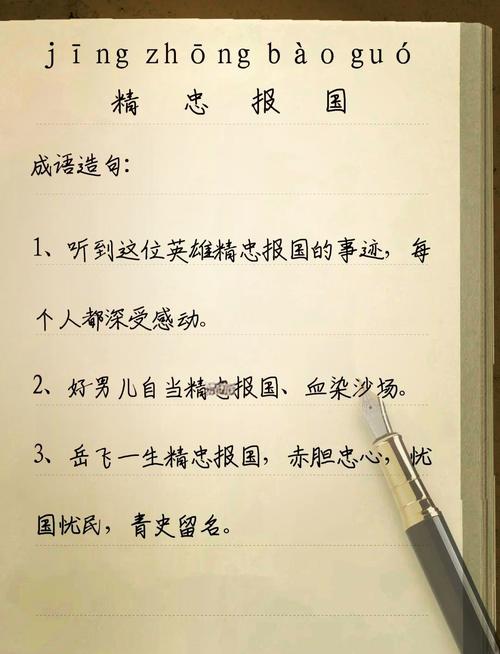 jīng zhōng bào guó
精 忠 报 国
成语造句:
1、听到这位英雄精忠报国的事迹，每
个人都深受感动。
2、好男儿自当精忠报国、血染沙场。
3、岳飞一生精忠报国，赤胆忠心，忧
国忧民，青史留名。